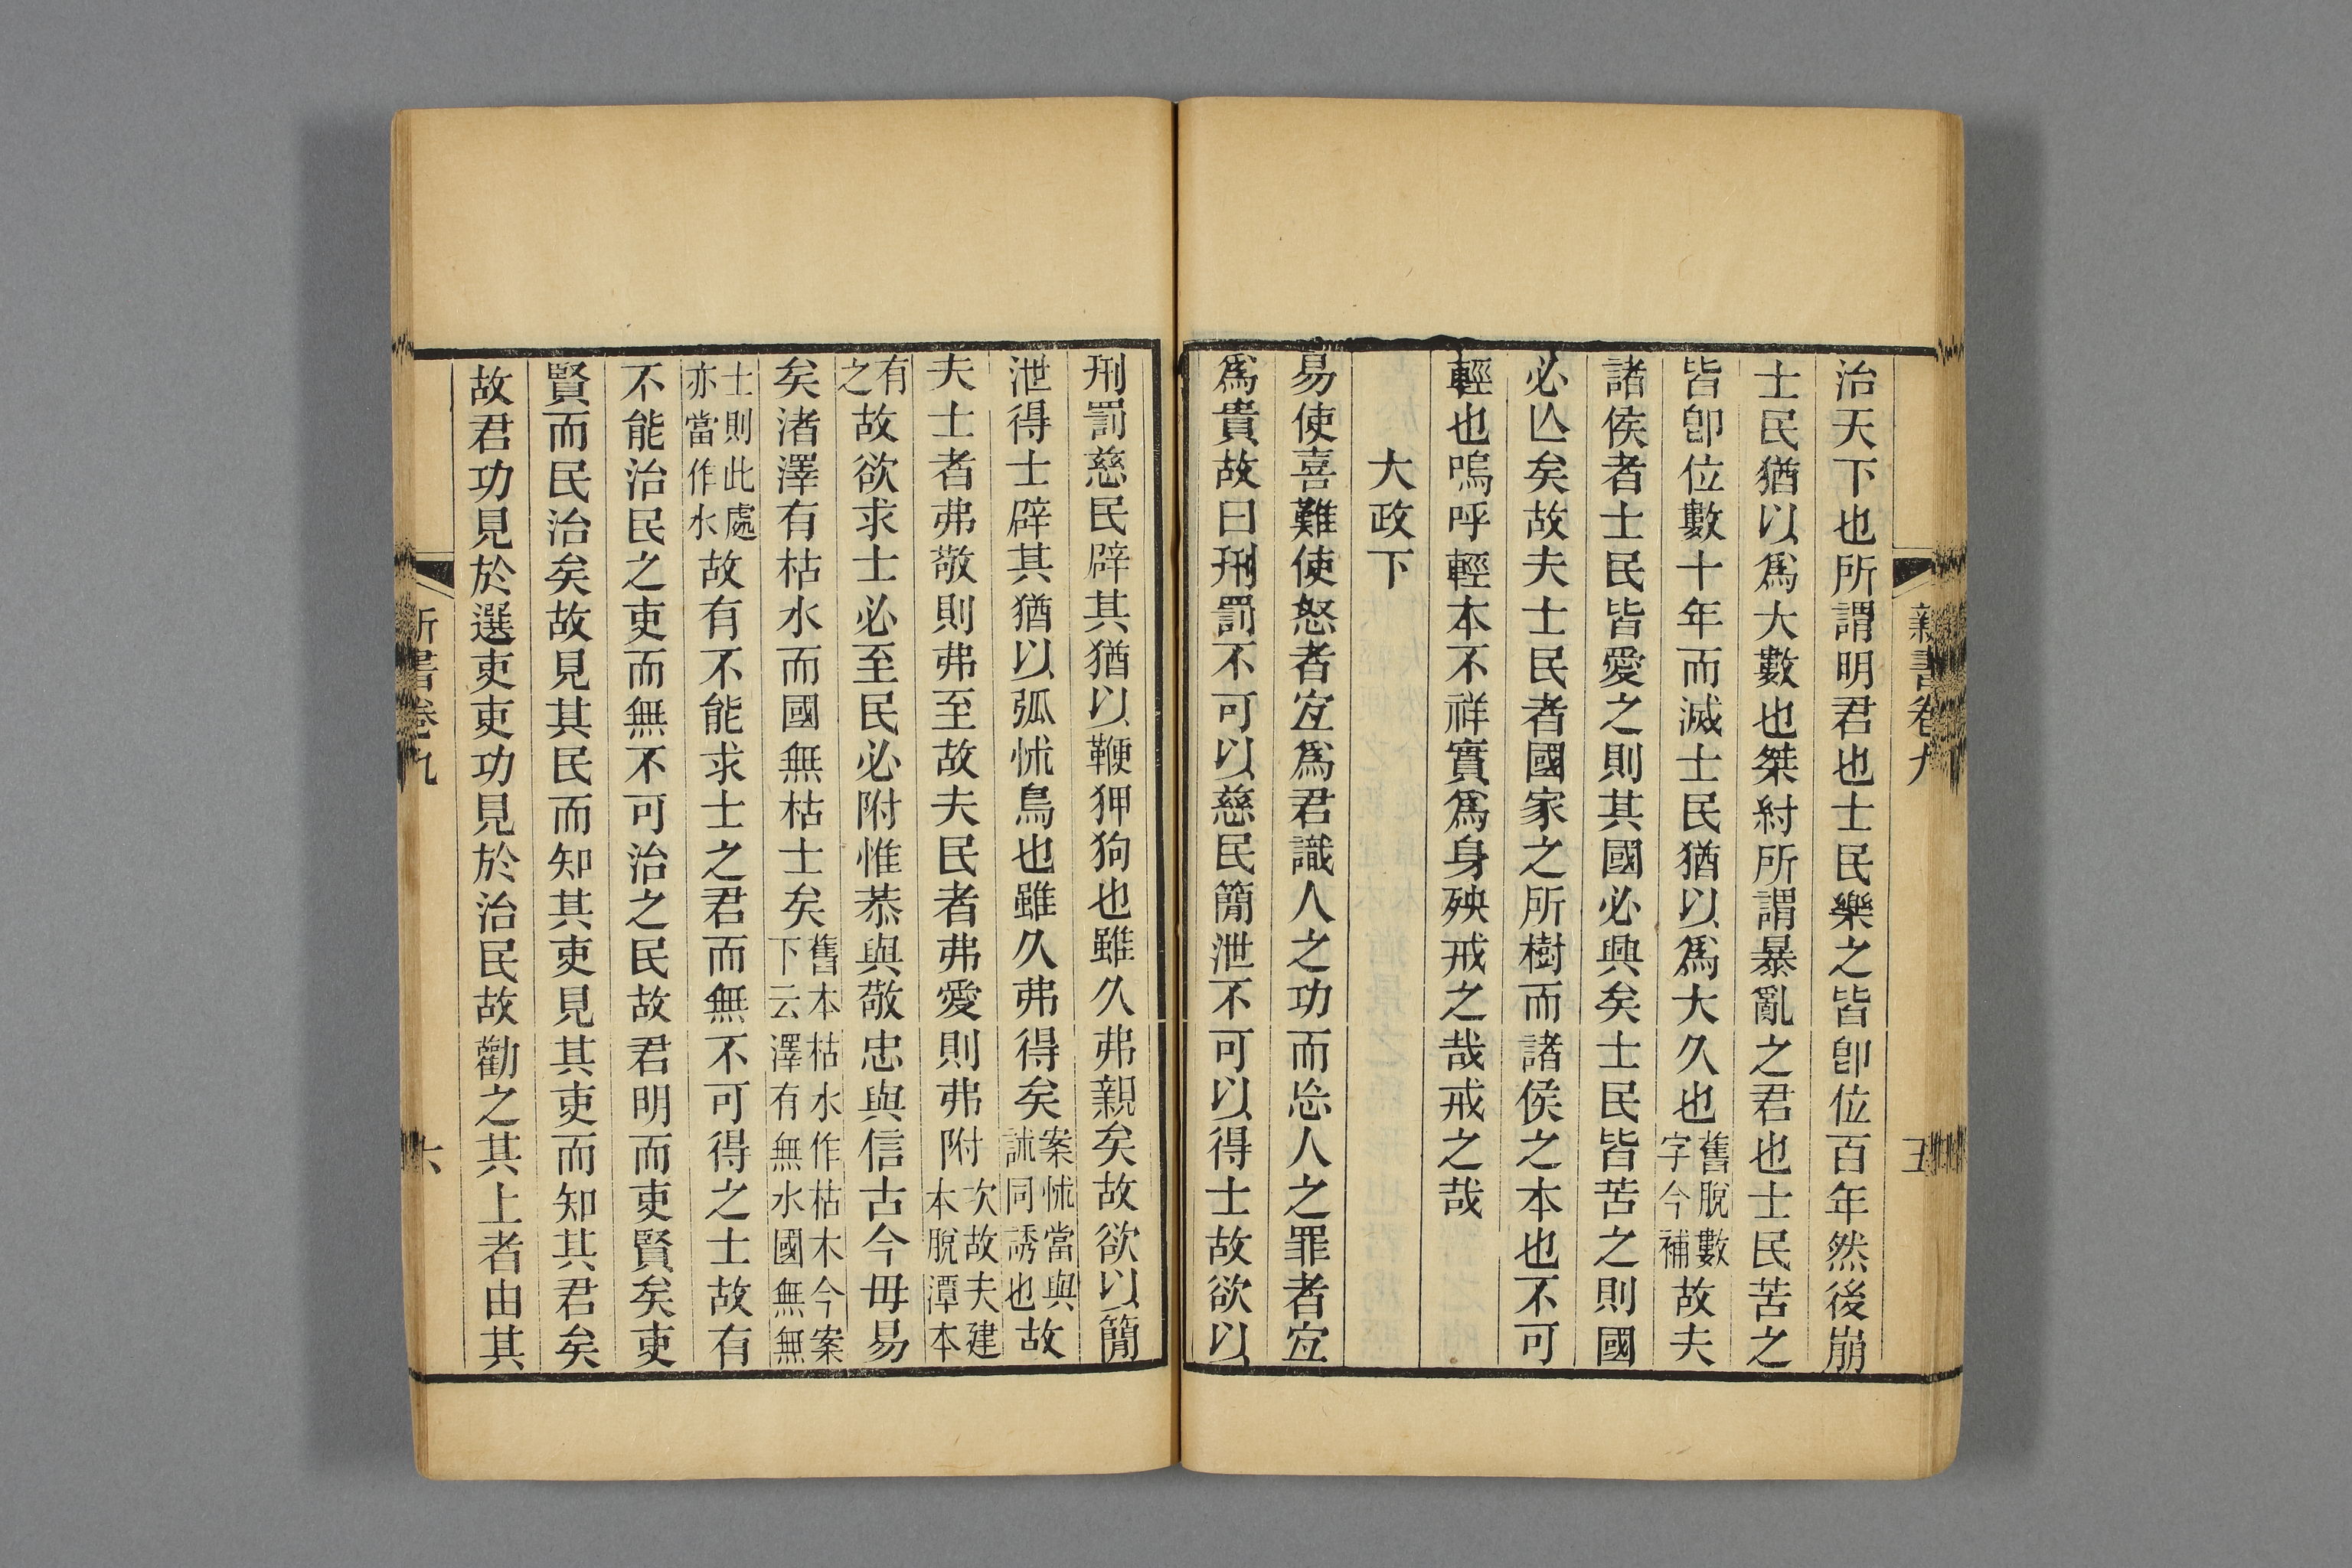 新書卷九
五
治天下也所謂明君也士民樂之皆卽位百年然後崩
士民猶以爲大數也桀紂所謂暴亂之君也士民苦之
皆卽位數十年而滅士民猶以爲大久也舊脫數字今補故夫
諸侯者士民皆愛之則其國必興矣士民皆苦之則國
必亾矣故夫士民者國家之所樹而諸侯之本也不可
輕也嗚呼輕本不祥實爲身殃戒之哉戒之哉
大政下
易使喜難使怒者宜爲君識人之功而忘人之罪者宜
爲貴故曰刑罰不可以慈民簡泄不可以得士故欲以
刑罰慈民辟其猶以鞭狎狗也雖久弗親矣故欲以簡
泄得士辟其猶以弧怵鳥也雖久弗得矣案怵當與訹同誘也故
夫士者弗敬則弗至故夫民者弗愛則弗附次故夫建本脫潭本
有之故欲求士必至民必附惟恭與敬忠與信古今毋易
矣渚澤有枯水而國無枯士矣舊本枯水作枯木今案下云澤有無水國無無
士則此處亦當作水故有不能求士之君而無不可得之士故有
不能治民之吏而無不可治之民故君明而吏賢矣吏
賢而民治矣故見其民而知其吏見其吏而知其君矣
故君功見於選吏吏功見於治民故勸之其上者由其
新書卷九
六